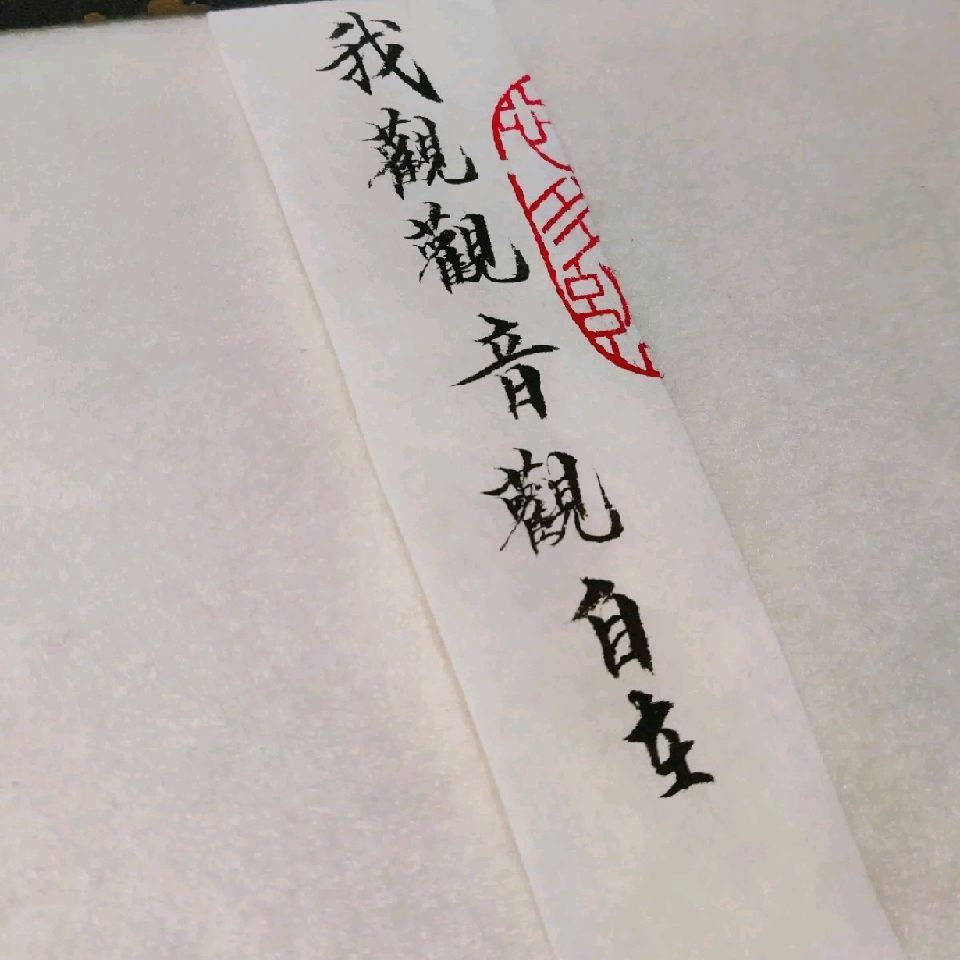 我觀觀音觀自在